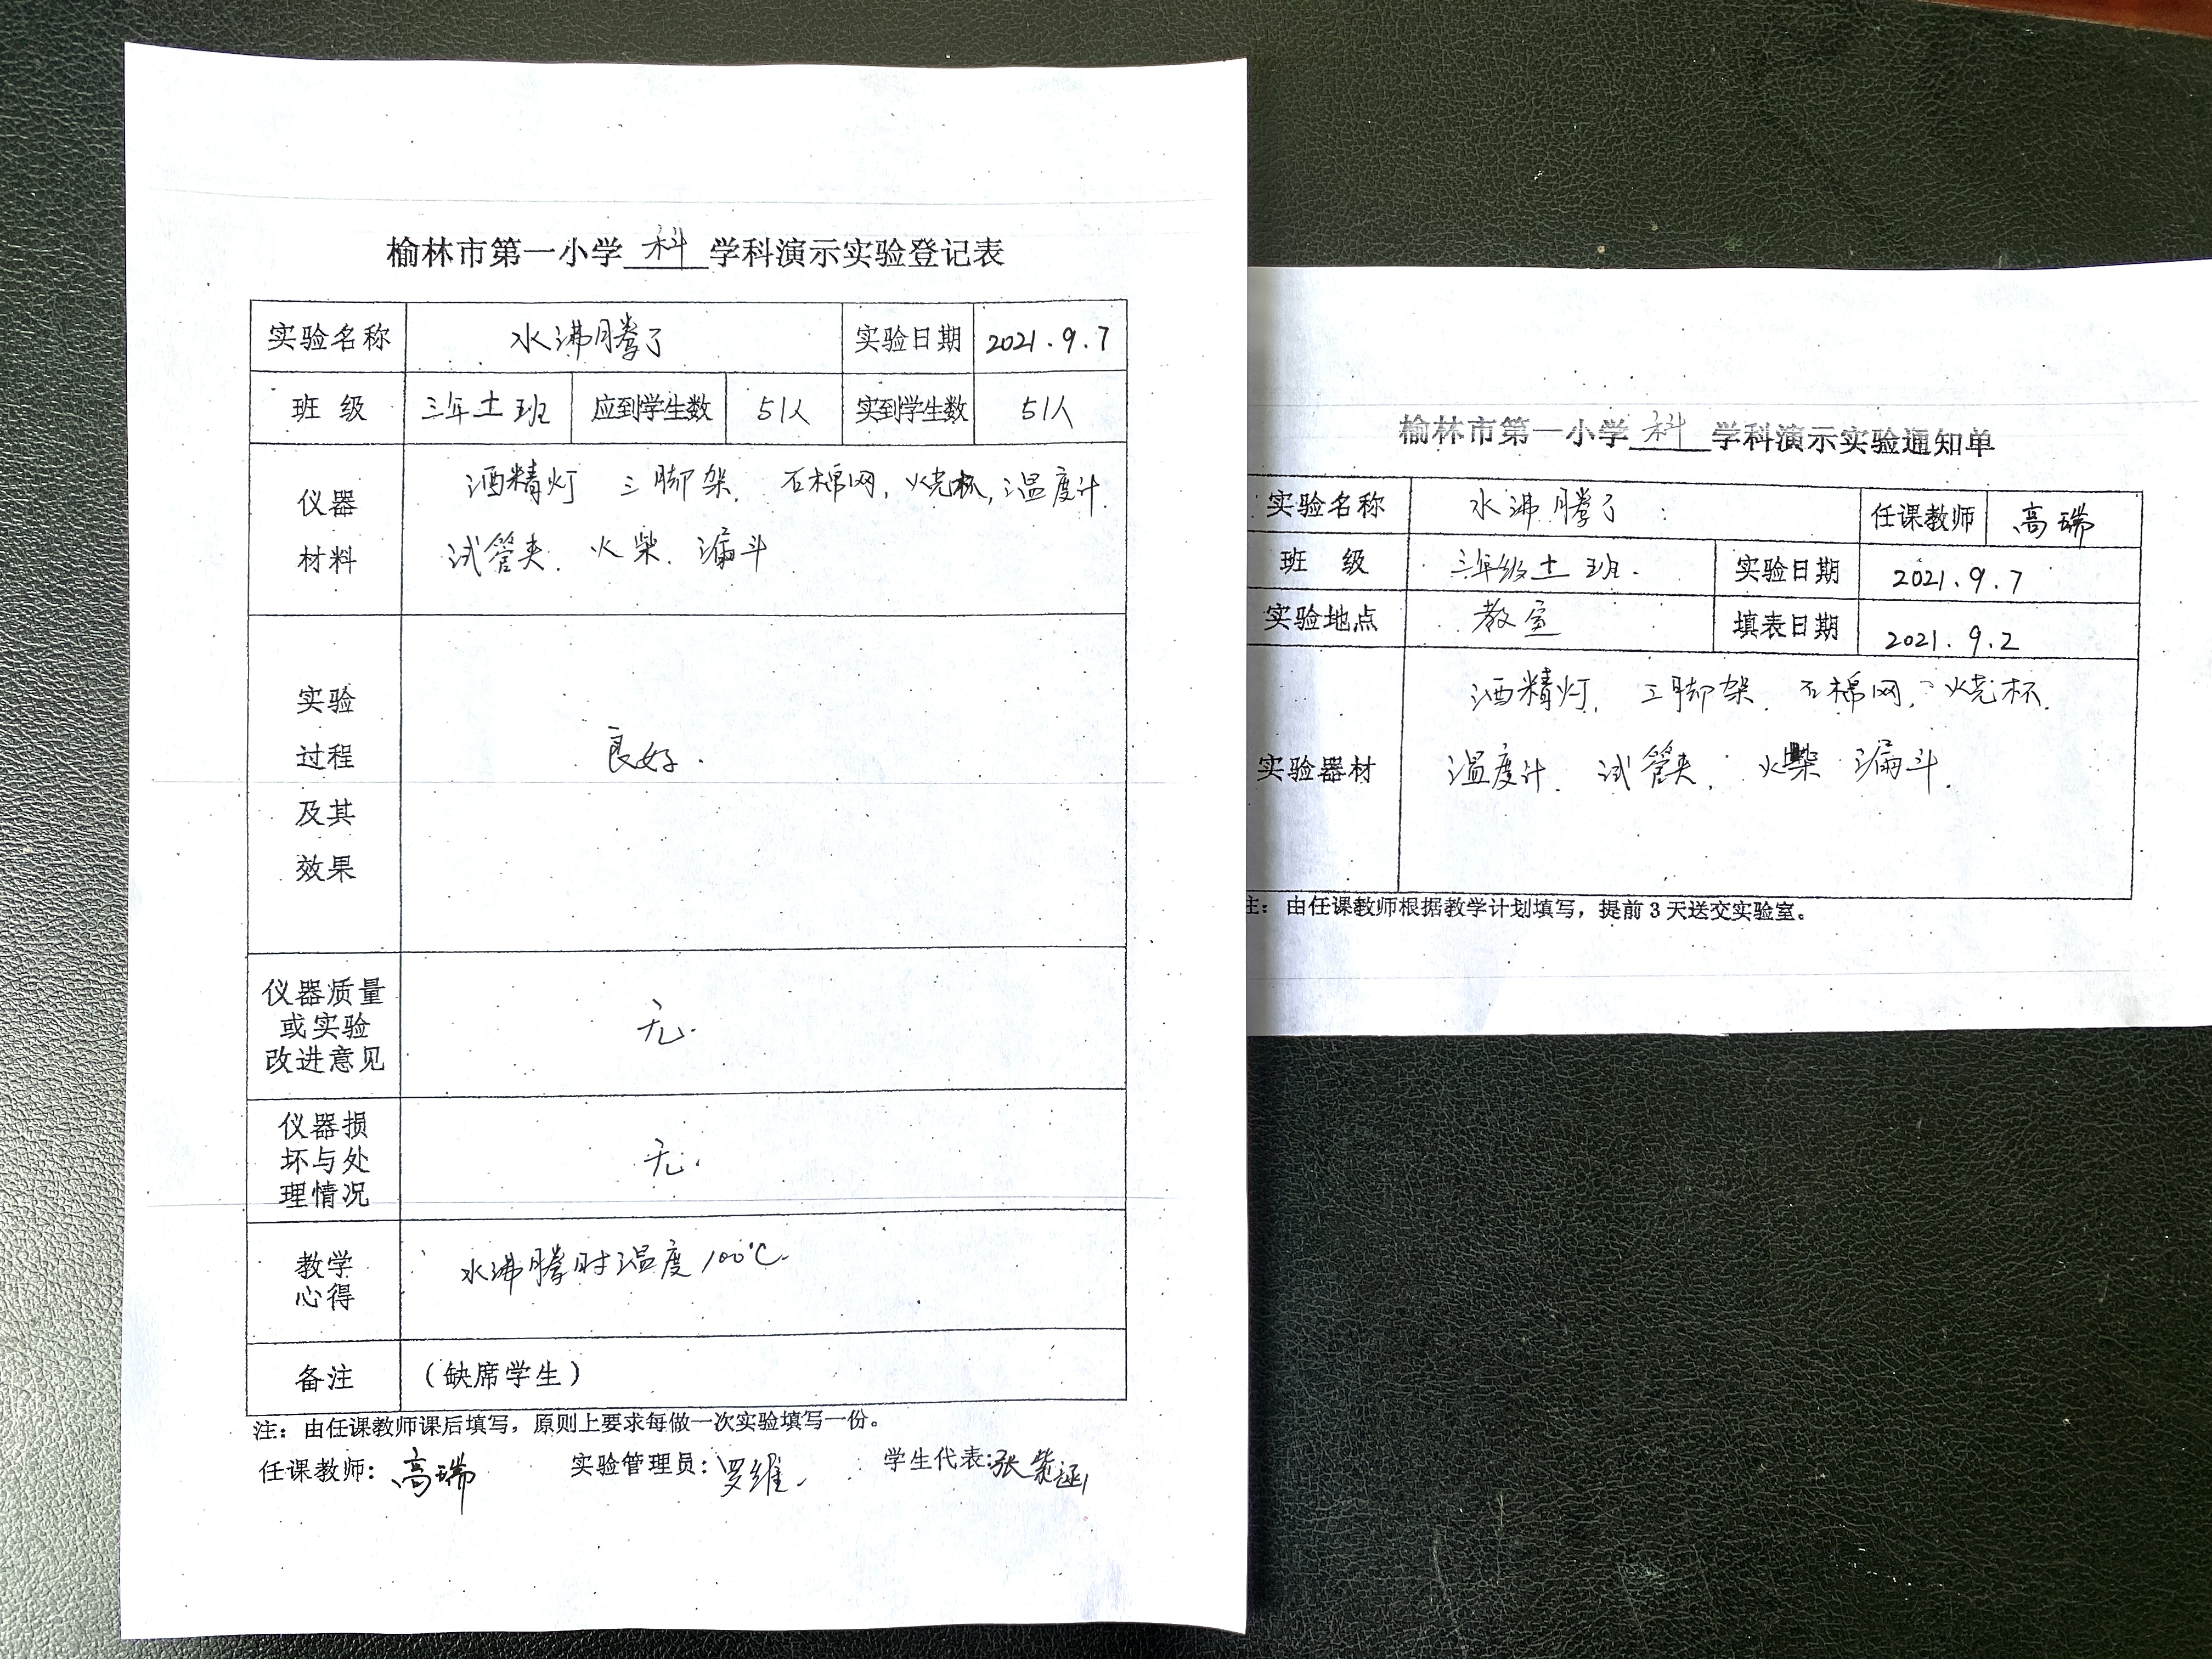 榆林市第一小学 科 学科演示实验登记表
实验名称 水沸腾了 实验日期 2021.9.7
班 级 三年十一班 应到学生数 51人 实到学生数 51人
仪器
材料
酒精灯 三脚架. 石棉网, 烧杯, 温度计.
试管夹. 火柴. 漏斗
实验
过程
及其
效果
良好.
仪器质量
或实验
改进意见
无.
仪器损
坏与处
理情况
无.
教学
心得
水沸腾时温度100℃.
备注 （缺席学生）
注：由任课教师课后填写，原则上要求每做一次实验填写一份。
任课教师：高瑞 实验管理员：罗维. 学生代表：张紫涵
榆林市第一小学 科 学科演示实验通知单
实验名称 水沸腾了 任课教师 高瑞
班 级 三年级十一班. 实验日期 2021.9.7
实验地点 教室 填表日期 2021.9.2
实验器材
酒精灯. 三脚架. 石棉网, 烧杯.
温度计. 试管夹. 火柴 漏斗.
注：由任课教师根据教学计划填写，提前3天送交实验室。